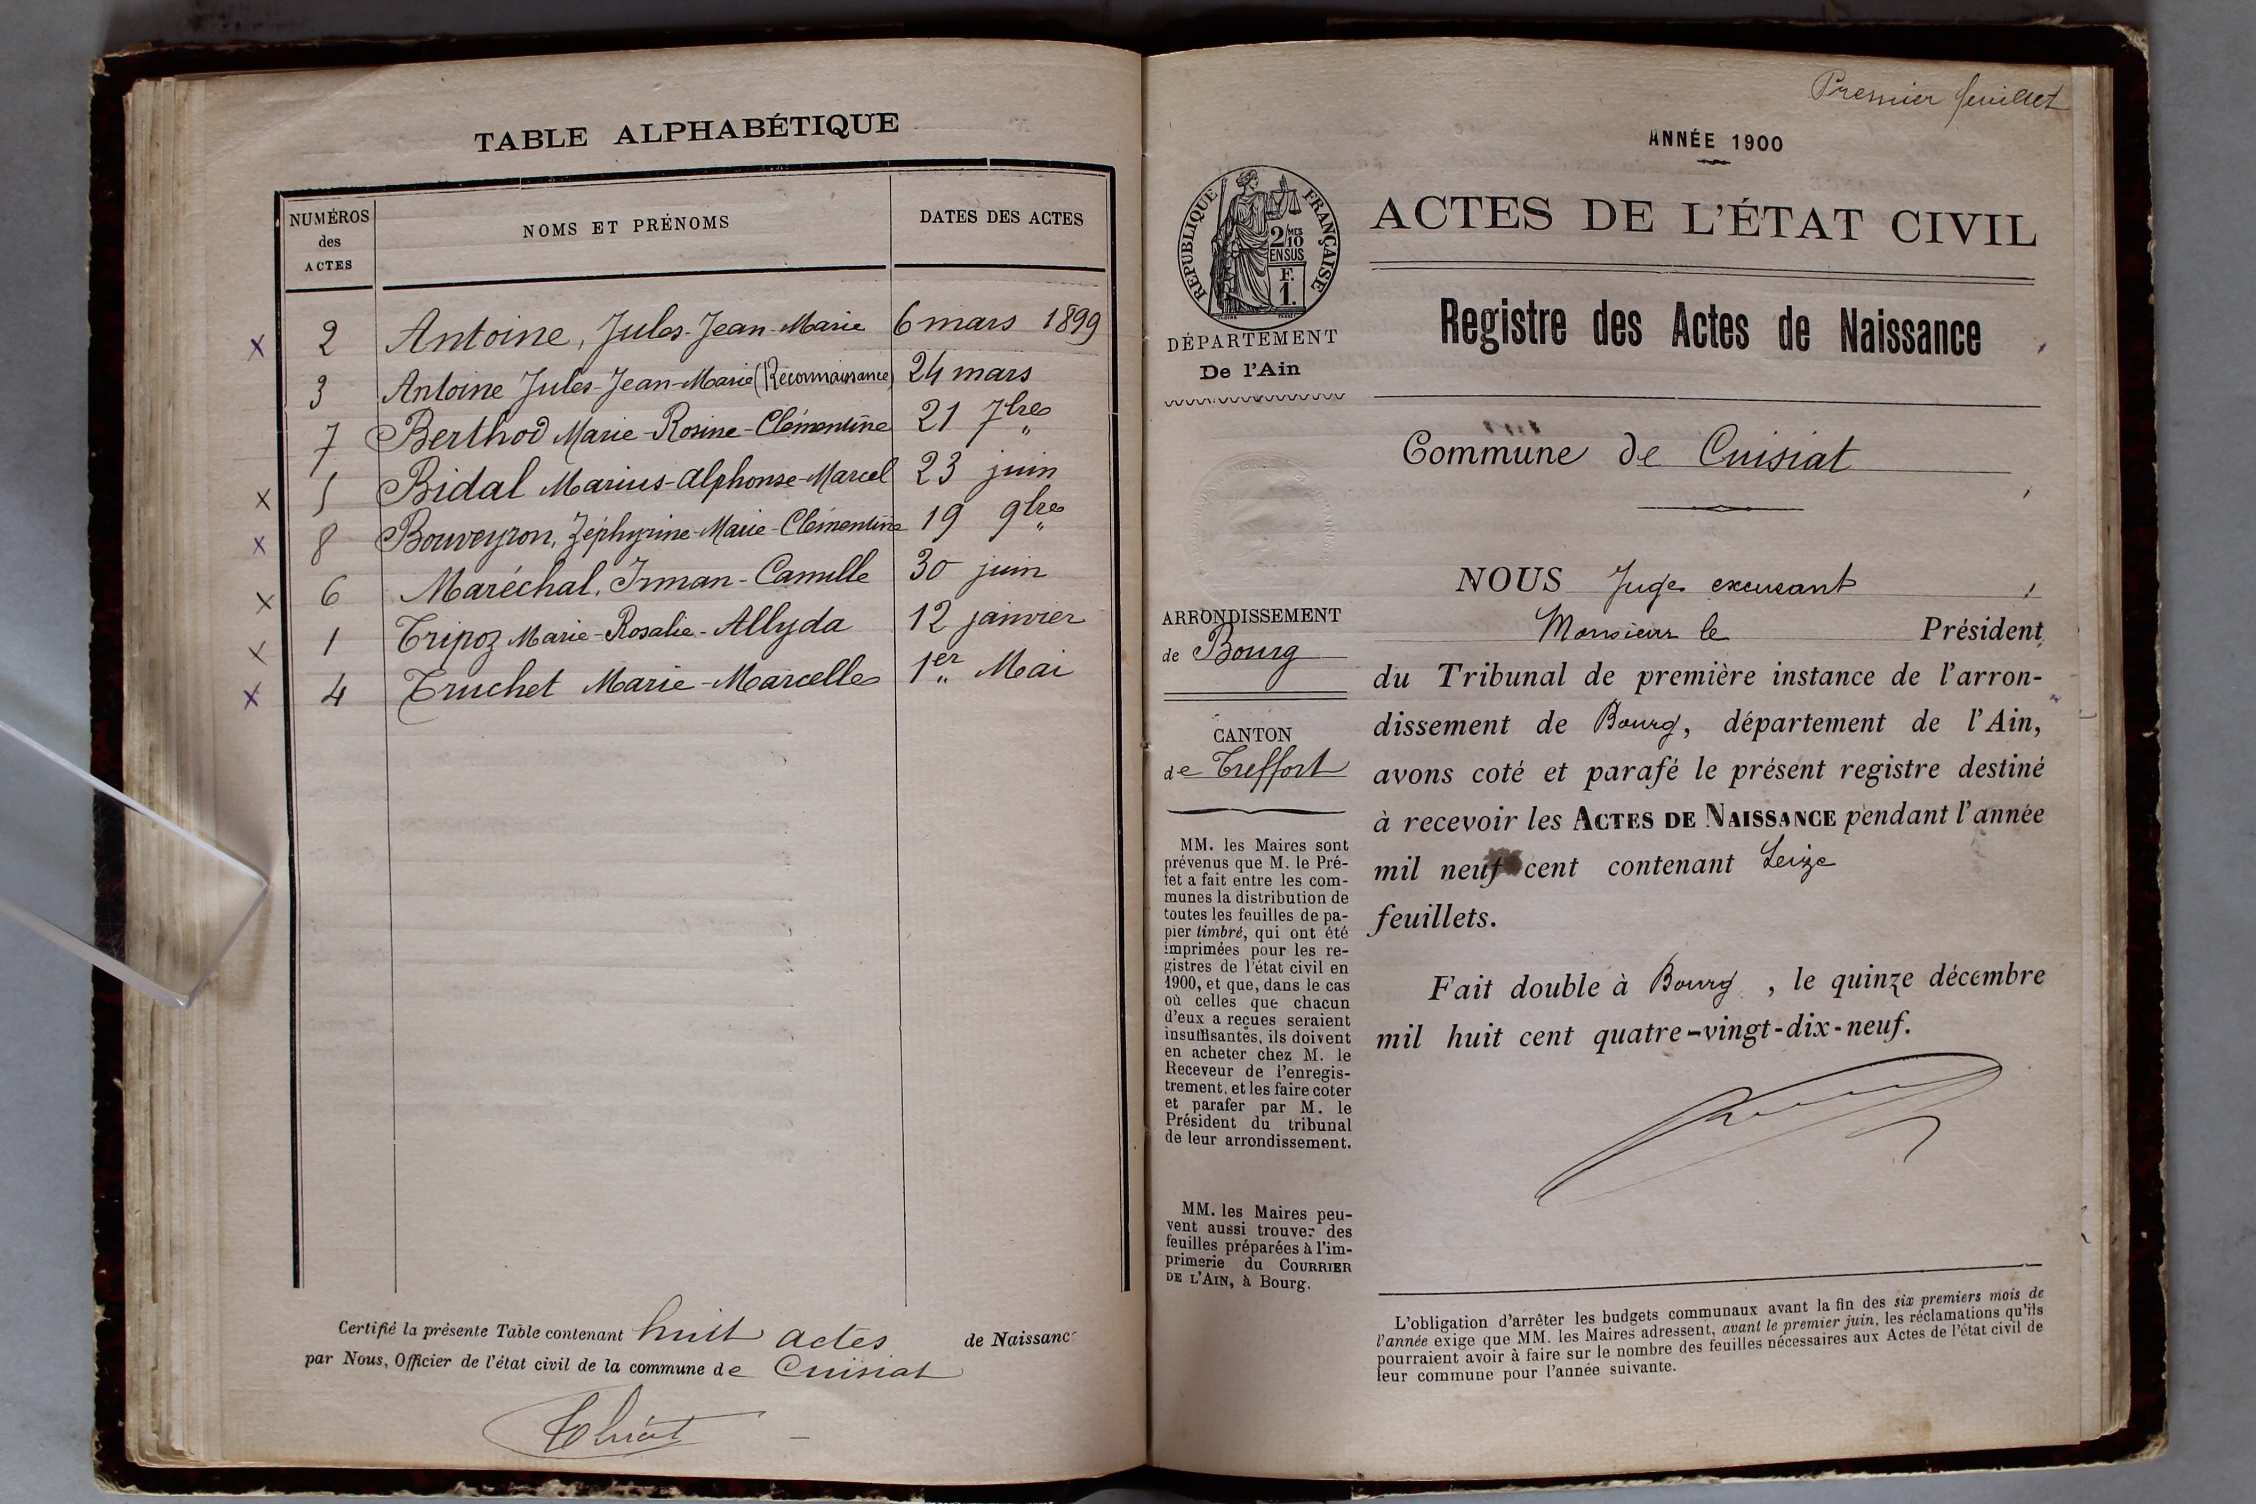 TABLE ALPHABÉTIQUE
NUMÉROS des ACTES
NOMS ET PRÉNOMS
DATES DES ACTES
x 2 Antoine, Jules-Jean-Marie 6 mars 1899
3 Antoine Jules-Jean-Marie (Reconnaissance) 24 mars
7 Berthod Marie-Rosine-Clémentine 21 7bre "
x 5 Bidal Marius-Alphonse-Marcel 23 juin
x 8 Bouveyron, Zéphyrine-Marie-Clémentine 19 9bre "
x 6 Maréchal, Irman-Camille 30 juin
x 1 Tripoz Marie-Rosalie-Allyda 12 janvier
x 4 Truchet Marie-Marcelle 1er Mai
Certifié la présente Table contenant huit actes de Naissance
par Nous, Officier de l'état civil de la commune de Cuisiat
Premier feuillet
ANNÉE 1900
RÉPUBLIQUE FRANÇAISE
2/10MES
EN SUS
F.
1.
DÉPARTEMENT
De l'Ain
ARRONDISSEMENT
de Bourg
CANTON
de Treffort
MM. les Maires sont
prévenus que M. le Pré-
fet a fait entre les com-
munes la distribution de
toutes les feuilles de pa-
pier timbré, qui ont été
imprimées pour les re-
gistres de l'état civil en
1900, et que, dans le cas
où celles que chacun
d'eux a reçues seraient
insuffisantes, ils doivent
en acheter chez M. le
Receveur de l'enregis-
trement, et les faire coter
et parafer par M. le
Président du tribunal
de leur arrondissement.
MM. les Maires peu-
vent aussi trouver des
feuilles préparées à l'im-
primerie du COURRIER
DE L'AIN, à Bourg.
ACTES DE L'ÉTAT CIVIL
Registre des Actes de Naissance
Commune de Cuisiat
NOUS Juge excusant
Monsieur le Président
du Tribunal de première instance de l'arron-
dissement de Bourg, département de l'Ain,
avons coté et parafé le présent registre destiné
à recevoir les ACTES DE NAISSANCE pendant l'année
mil neuf cent contenant Seize
feuillets.
Fait double à Bourg, le quinze décembre
mil huit cent quatre-vingt-dix-neuf.
L'obligation d'arrêter les budgets communaux avant la fin des six premiers mois de
l'année exige que MM. les Maires adressent, avant le premier juin, les réclamations qu'ils
pourraient avoir à faire sur le nombre des feuilles nécessaires aux Actes de l'état civil de
leur commune pour l'année suivante.